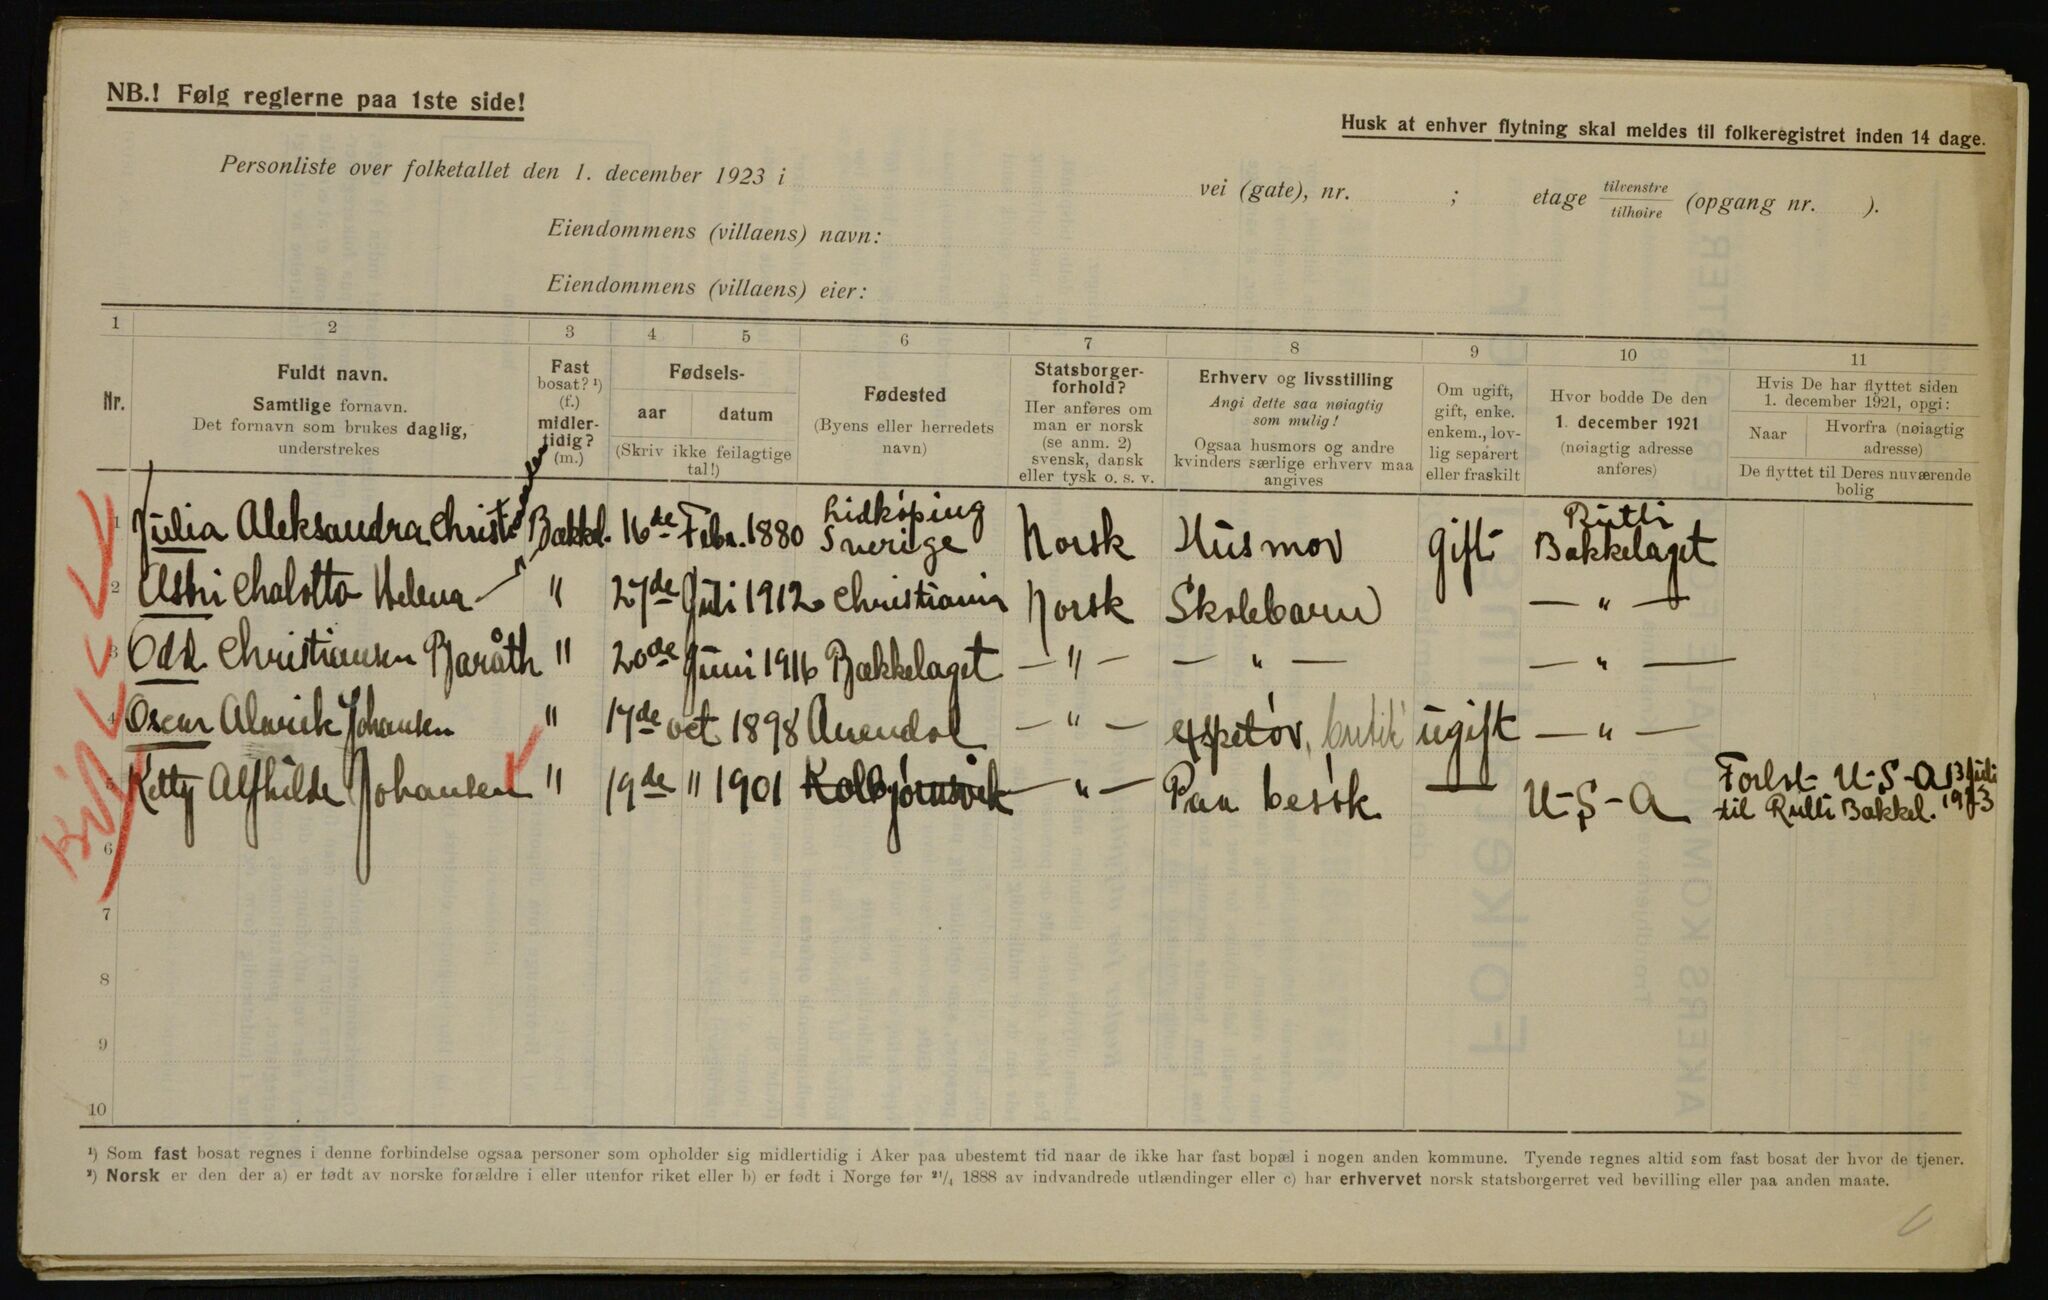 NB.! Følg reglerne paa 1ste side!
Husk at enhver flytning skal meldes til folkeregistret inden 14 dage.
Personliste over folketallet den 1. december 1923 i vei (gate), nr. ; etage tilvenstre/tilhøire (opgang nr. ).
Eiendommens (villaens) navn:
Eiendommens (villaens) eier:
1 2 3 4 5 6 7 8 9 10 11
Nr.
Fuldt navn.
Samtlige fornavn.
Det fornavn som brukes daglig,
understrekes
Fast
bosat? ¹)
(f.)
midler-
tidig?
(m.)
Fødsels-
aar datum
(Skriv ikke feilagtige
tal!)
Fødested
(Byens eller herredets
navn)
Statsborger-
forhold?
Her anføres om
man er norsk
(se anm. 2)
svensk, dansk
eller tysk o. s. v.
Erhverv og livsstilling
Angi dette saa nøiagtig
som mulig!
Ogsaa husmors og andre
kvinders særlige erhverv maa
angives
Om ugift,
gift, enke.
enkem., lov-
lig separert
eller fraskilt
Hvor bodde De den
1. december 1921
(nøiagtig adresse
anføres)
Hvis De har flyttet siden
1. december 1921, opgi:
Naar Hvorfra (nøiagtig
adresse)
De flyttet til Deres nuværende
bolig
1 Julia Aleksandra Bækkel. 16de Febr. 1880 Lidköping Sverige Norsk Husmor gift Bækkelaget
2 Astri Chalotta Helena " 27de Juli 1912 Christiania Norsk Skolebarn — " —
3 Odd Christiansen " 20de Juni 1916 Bækkelaget — " — — " — — " —
4 Oscar Alarik Johansen " 17de oct 1898 — " — butik ugift — " —
5 Ketty Alfhilde Johansen " 19de " 1901 Kolbjørnsvik — " — Paa besøk — U-S-A U-S-A 13 Juli
til Bækkel. 1923
6
7
8
9
10
¹) Som fast bosat regnes i denne forbindelse ogsaa personer som opholder sig midlertidig i Aker paa ubestemt tid naar de ikke har fast bopæl i nogen anden kommune. Tyende regnes altid som fast bosat der hvor de tjener.
²) Norsk er den der a) er født av norske forældre i eller utenfor riket eller b) er født i Norge før ²¹/₄ 1888 av indvandrede utlændinger eller c) har erhvervet norsk statsborgerret ved bevilling eller paa anden maate.